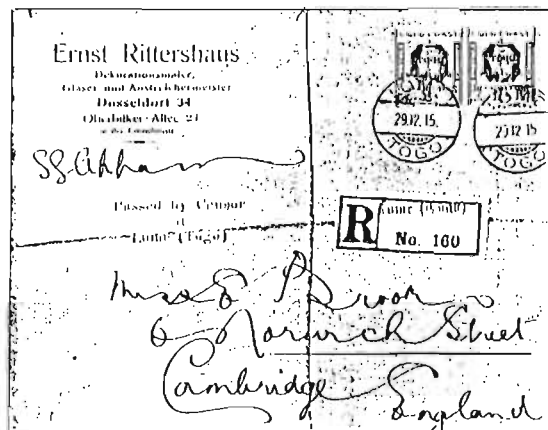 Ernst Rittershaus
Dekorationsmaler,
Glaser und Anstreichermeister
Düsseldorf 34
Oberbilker-Allee 21
SS. Akkam
Passed by Censor
at
Lome (Togo)
GOLD COAST
TOGO
29.12.15.
TOGO
29.12.15
TOGO
R
Lome (Togo)
No. 160
Miss E Broom
6 Norwich Street
Cambridge England